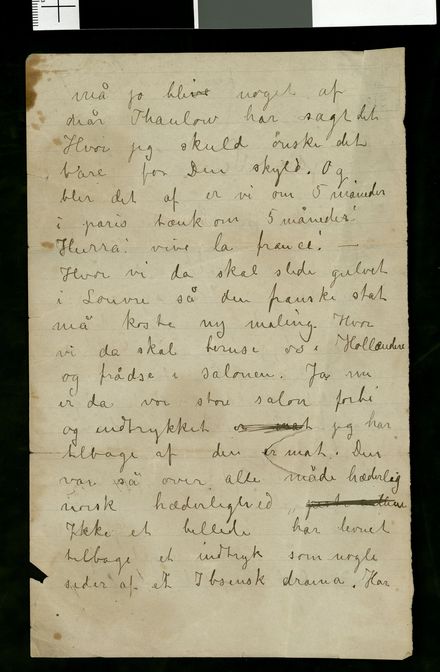 må jo blive noget af
når Thaulow har sagt det
Hvor jeg skuld ønske det
bare for Din skyld. Og
blir det af er vi om 5 måneder
i paris tænk om 5 måneder!
Hurra! vive la france! —
Hvor vi da skal slide gulvet
i Louvre så den franske stat
må koste ny maling. Hvor
vi da skal beruse os i Hollændere
og frådse i salonen. Ja nu
er da vor store salon forbi
og indtrykket jeg har
tilbage af den er mat. Den
var så over alle måde hæderlig
norsk hæderlighed
Ikke et billede har levnet
tilbage et indtryk som nogle
sider af et Ibsensk drama. Har